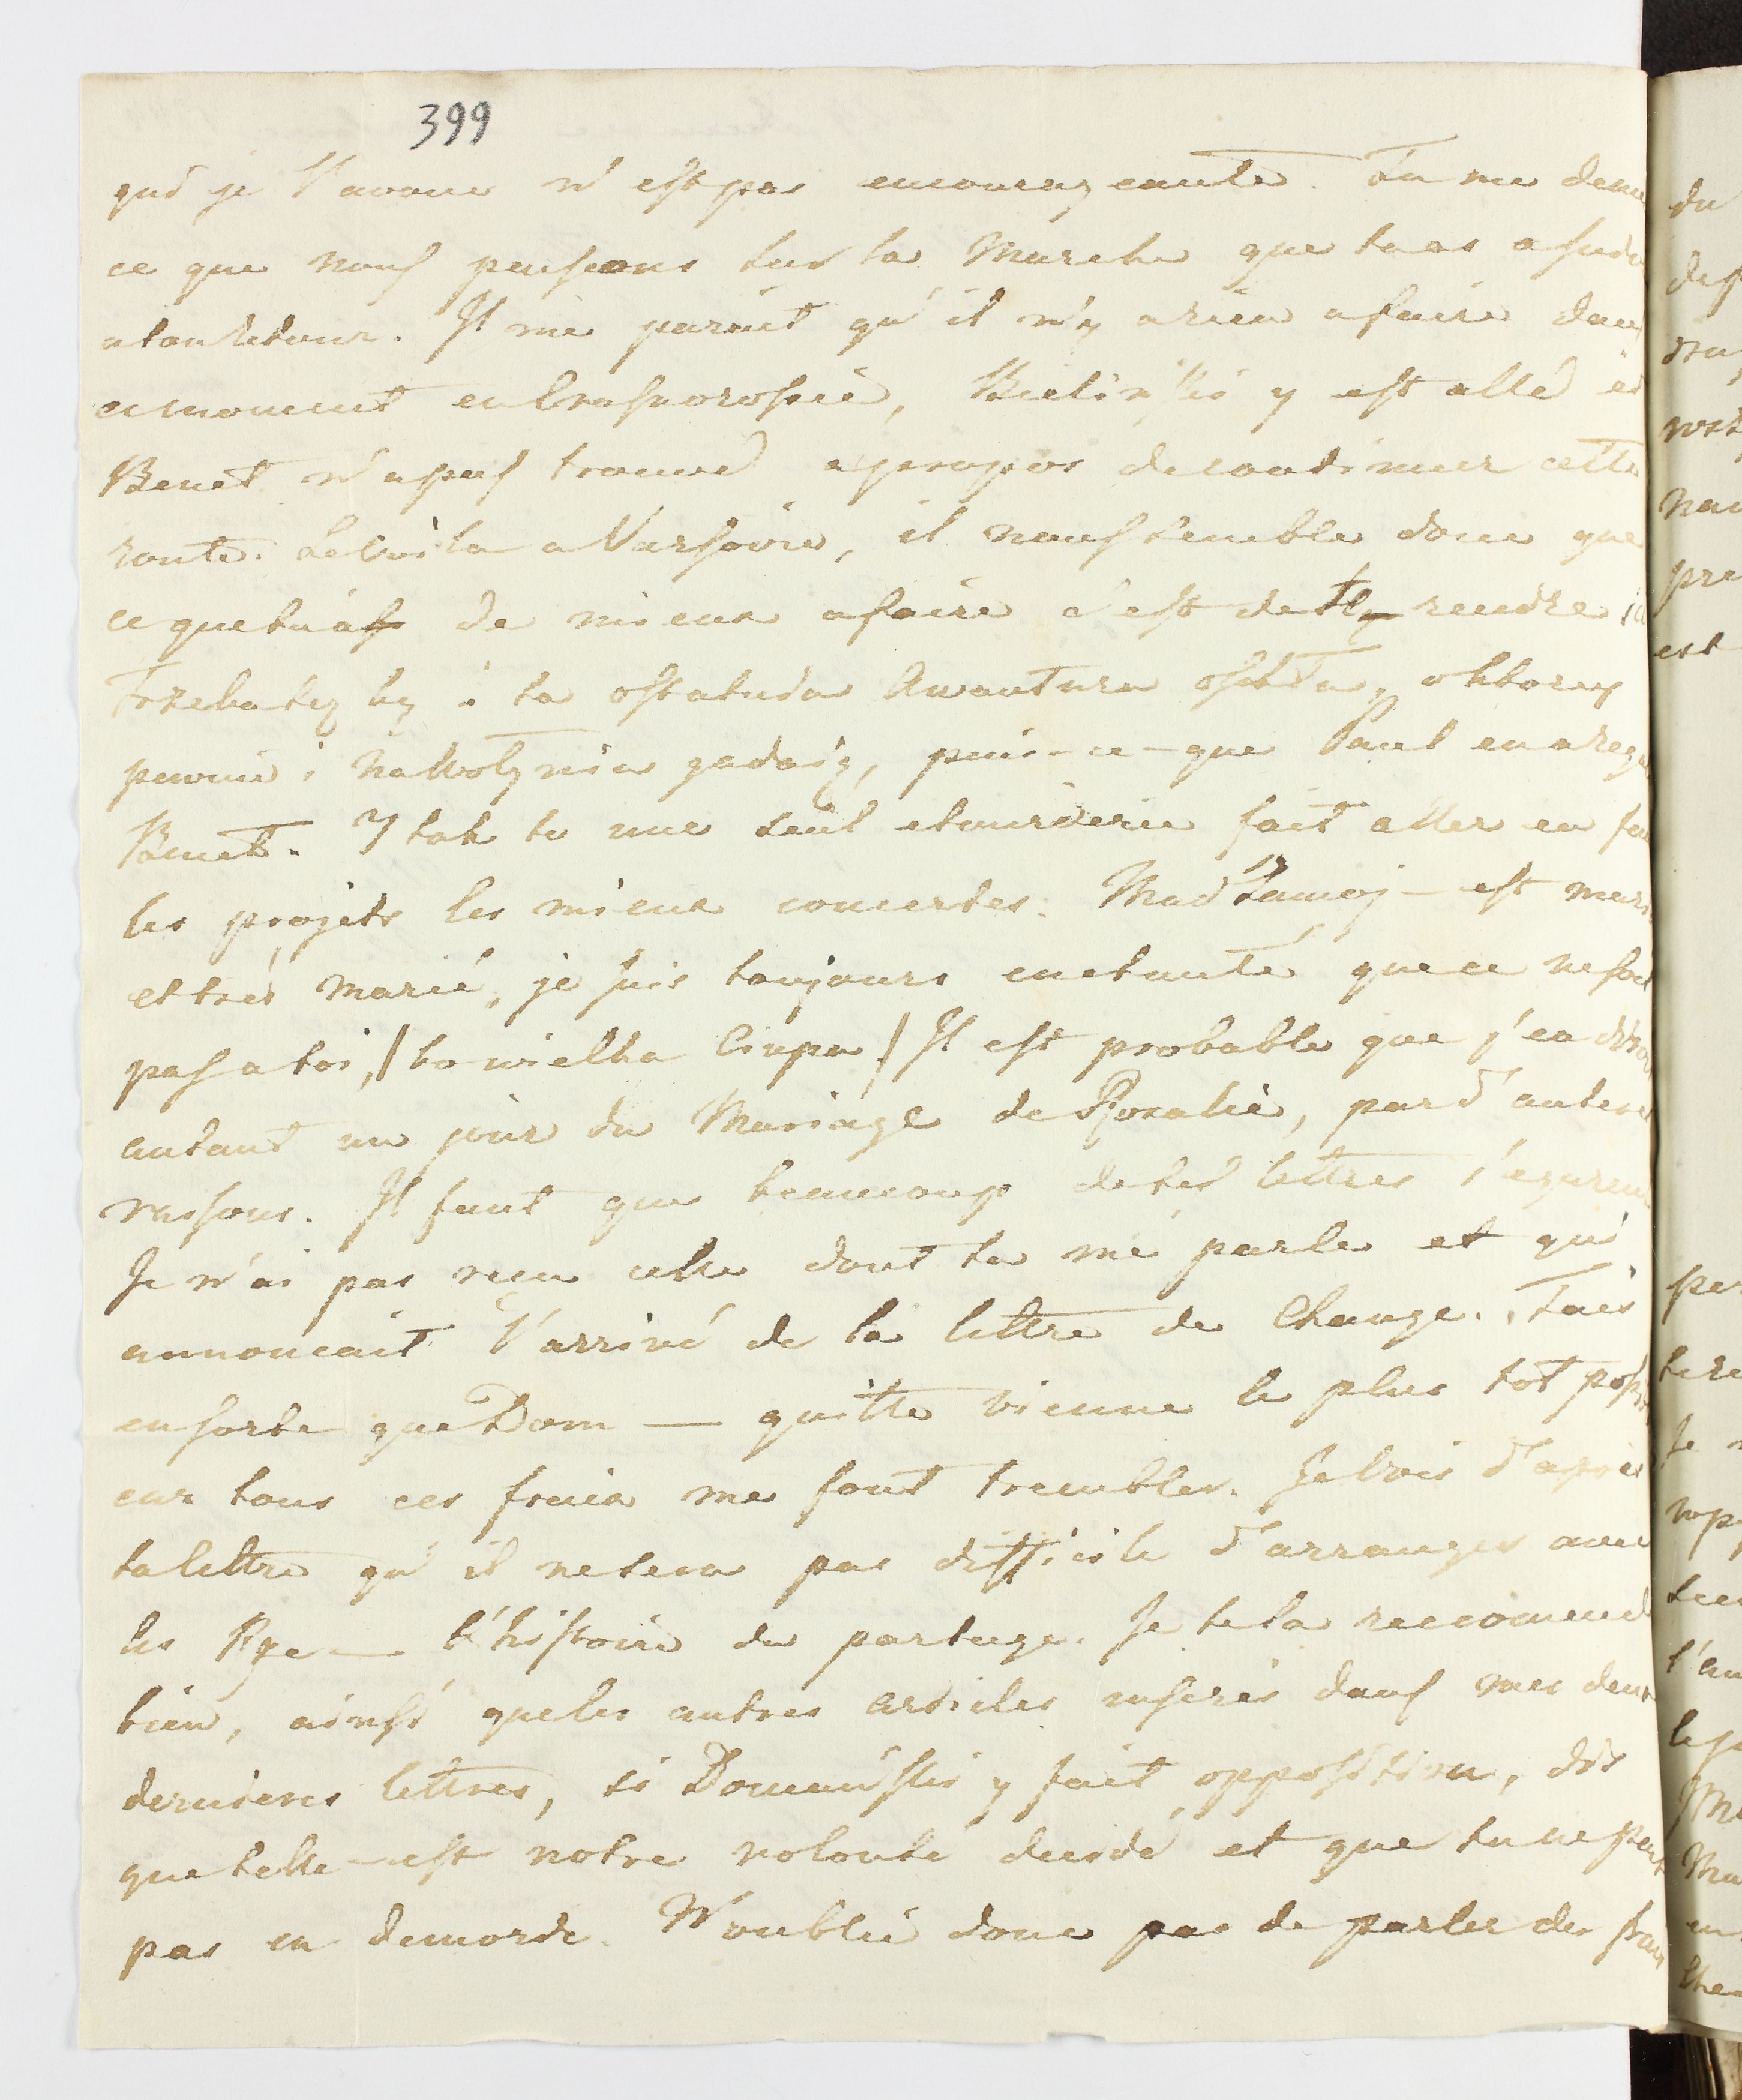 399
qui je l'avoue n'est pas encourageante. Tu me deman
ce que nous pensons sur la Marche que tu as a suivre
a ton retour. Il me parait qu'il n'y a rien a faire dans
ce moment en , Bielinski y est allé et
Benet n'a pas trouvé apropos de continuer cette
route. Le voila a Varsovie, il nous semble donc que
ce que tu as de mieux a faire c'est de t'y rendre
Trzeba tez by i ta ostatnia Awantura
pewnie i na Wolyniu gadaią, puis-ce-que Paul en a reçu
Benet. I tak to une seul etourderie fait aller en fu
les projets les mieux concertes. Mad Zamoj — est marié
et très marié, je suis toujours enchanté que ce ne soit
pas a toi, / to wielka Ciupa / Il est probable que j'en dirai
autant un jour du Mariage de Rosalie, par d'autres
raisons. Il faut que beaucoup de tes lettres s'egarent
Je n'ai pas reçu celle dont tu me parle et qui
annoncait l'arrivé de la lettre de Change. Fais
en sorte que Dom — quitte vienne le plus tot possi
car tous ces frais me font trembler. Je vois d'après
ta lettre qu'il ne sera pas difficile d'arranger avec
les Rze — l'histoire du partage. Je te la reccomend
bien, ainsi que les autres articles inserés dans mes deux
dernieres lettres, si Domanski y fait opposition, dis
que telle est notre volonté decidé et que tu ne peut
pas en demorde. N'oublie donc pas de parler des frais
du
est